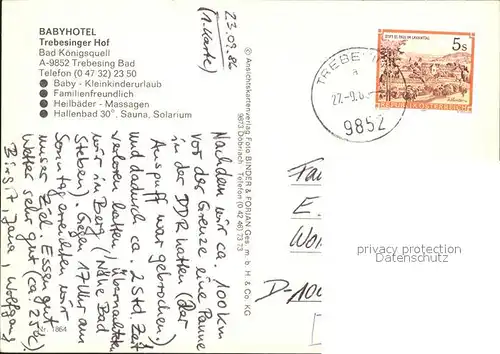 BABYHOTEL
Trebesinger Hof
Bad Königsquell
A-9852 Trebesing Bad
Telefon (0 47 32) 23 50
● Baby - Kleinkinderurlaub
● Familienfreundlich
● Heilbäder - Massagen
● Hallenbad 30°, Sauna, Solarium
23.09.86
(1. Karte)
Nachdem wir ca. 100 km
vor der Grenze eine Panne
in der DDR hatten (der
Auspuff war gebrochen)
und dadurch ca. 2 Std. Zeit
verloren hatten, übernachteten
wir in Berg (Nähe Bad
Steben). Gegen 17 Uhr am
Sonntag erreichten wir
unser Ziel. Essen gut
Wetter sehr gut (ca. 25°C).
Birgit, Jana, Wolfgang
Nr. 1864
© Ansichtskartenverlag Foto BINDER & FORIAN Ges. m. b. H. & Co. KG
9873 Döbriach - Telefon (0 42 46) 73 73
STIFT ST. PAUL IM LAVANTTAL
5s
REPUBLIK ÖSTERREICH
TREBE
a
22.-9.8
9852
Fa
E.
Wo
D-100
privacy protection
Datenschutz